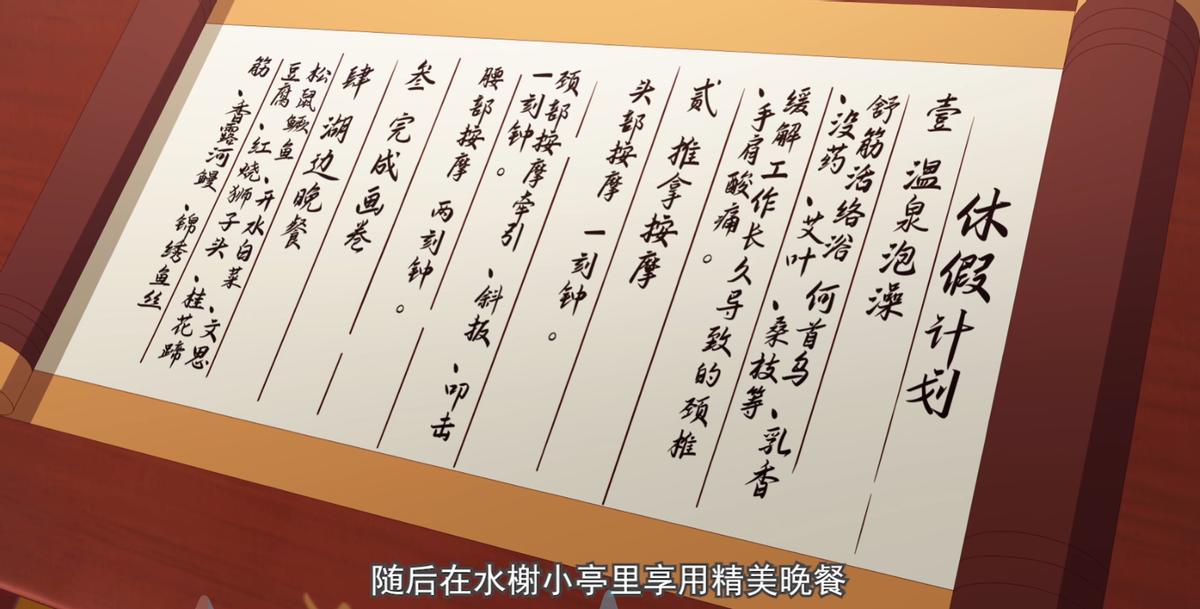 休假计划
壹 温泉泡澡
舒筋活络浴 何首乌、乳香
、没药、艾叶、桑枝等
缓解工作长久导致的颈椎
、手肩酸痛。
贰 推拿按摩
头部按摩 一刻钟。
颈部按摩牵引、斜扳、叩击
一刻钟。
腰部按摩 两刻钟。
叁 完成画卷
肆 湖边晚餐
松鼠鳜鱼、开水白菜、文思
豆腐、红烧狮子头、桂花蹄
筋、香露河鳗、锦绣鱼丝
随后在水榭小亭里享用精美晚餐